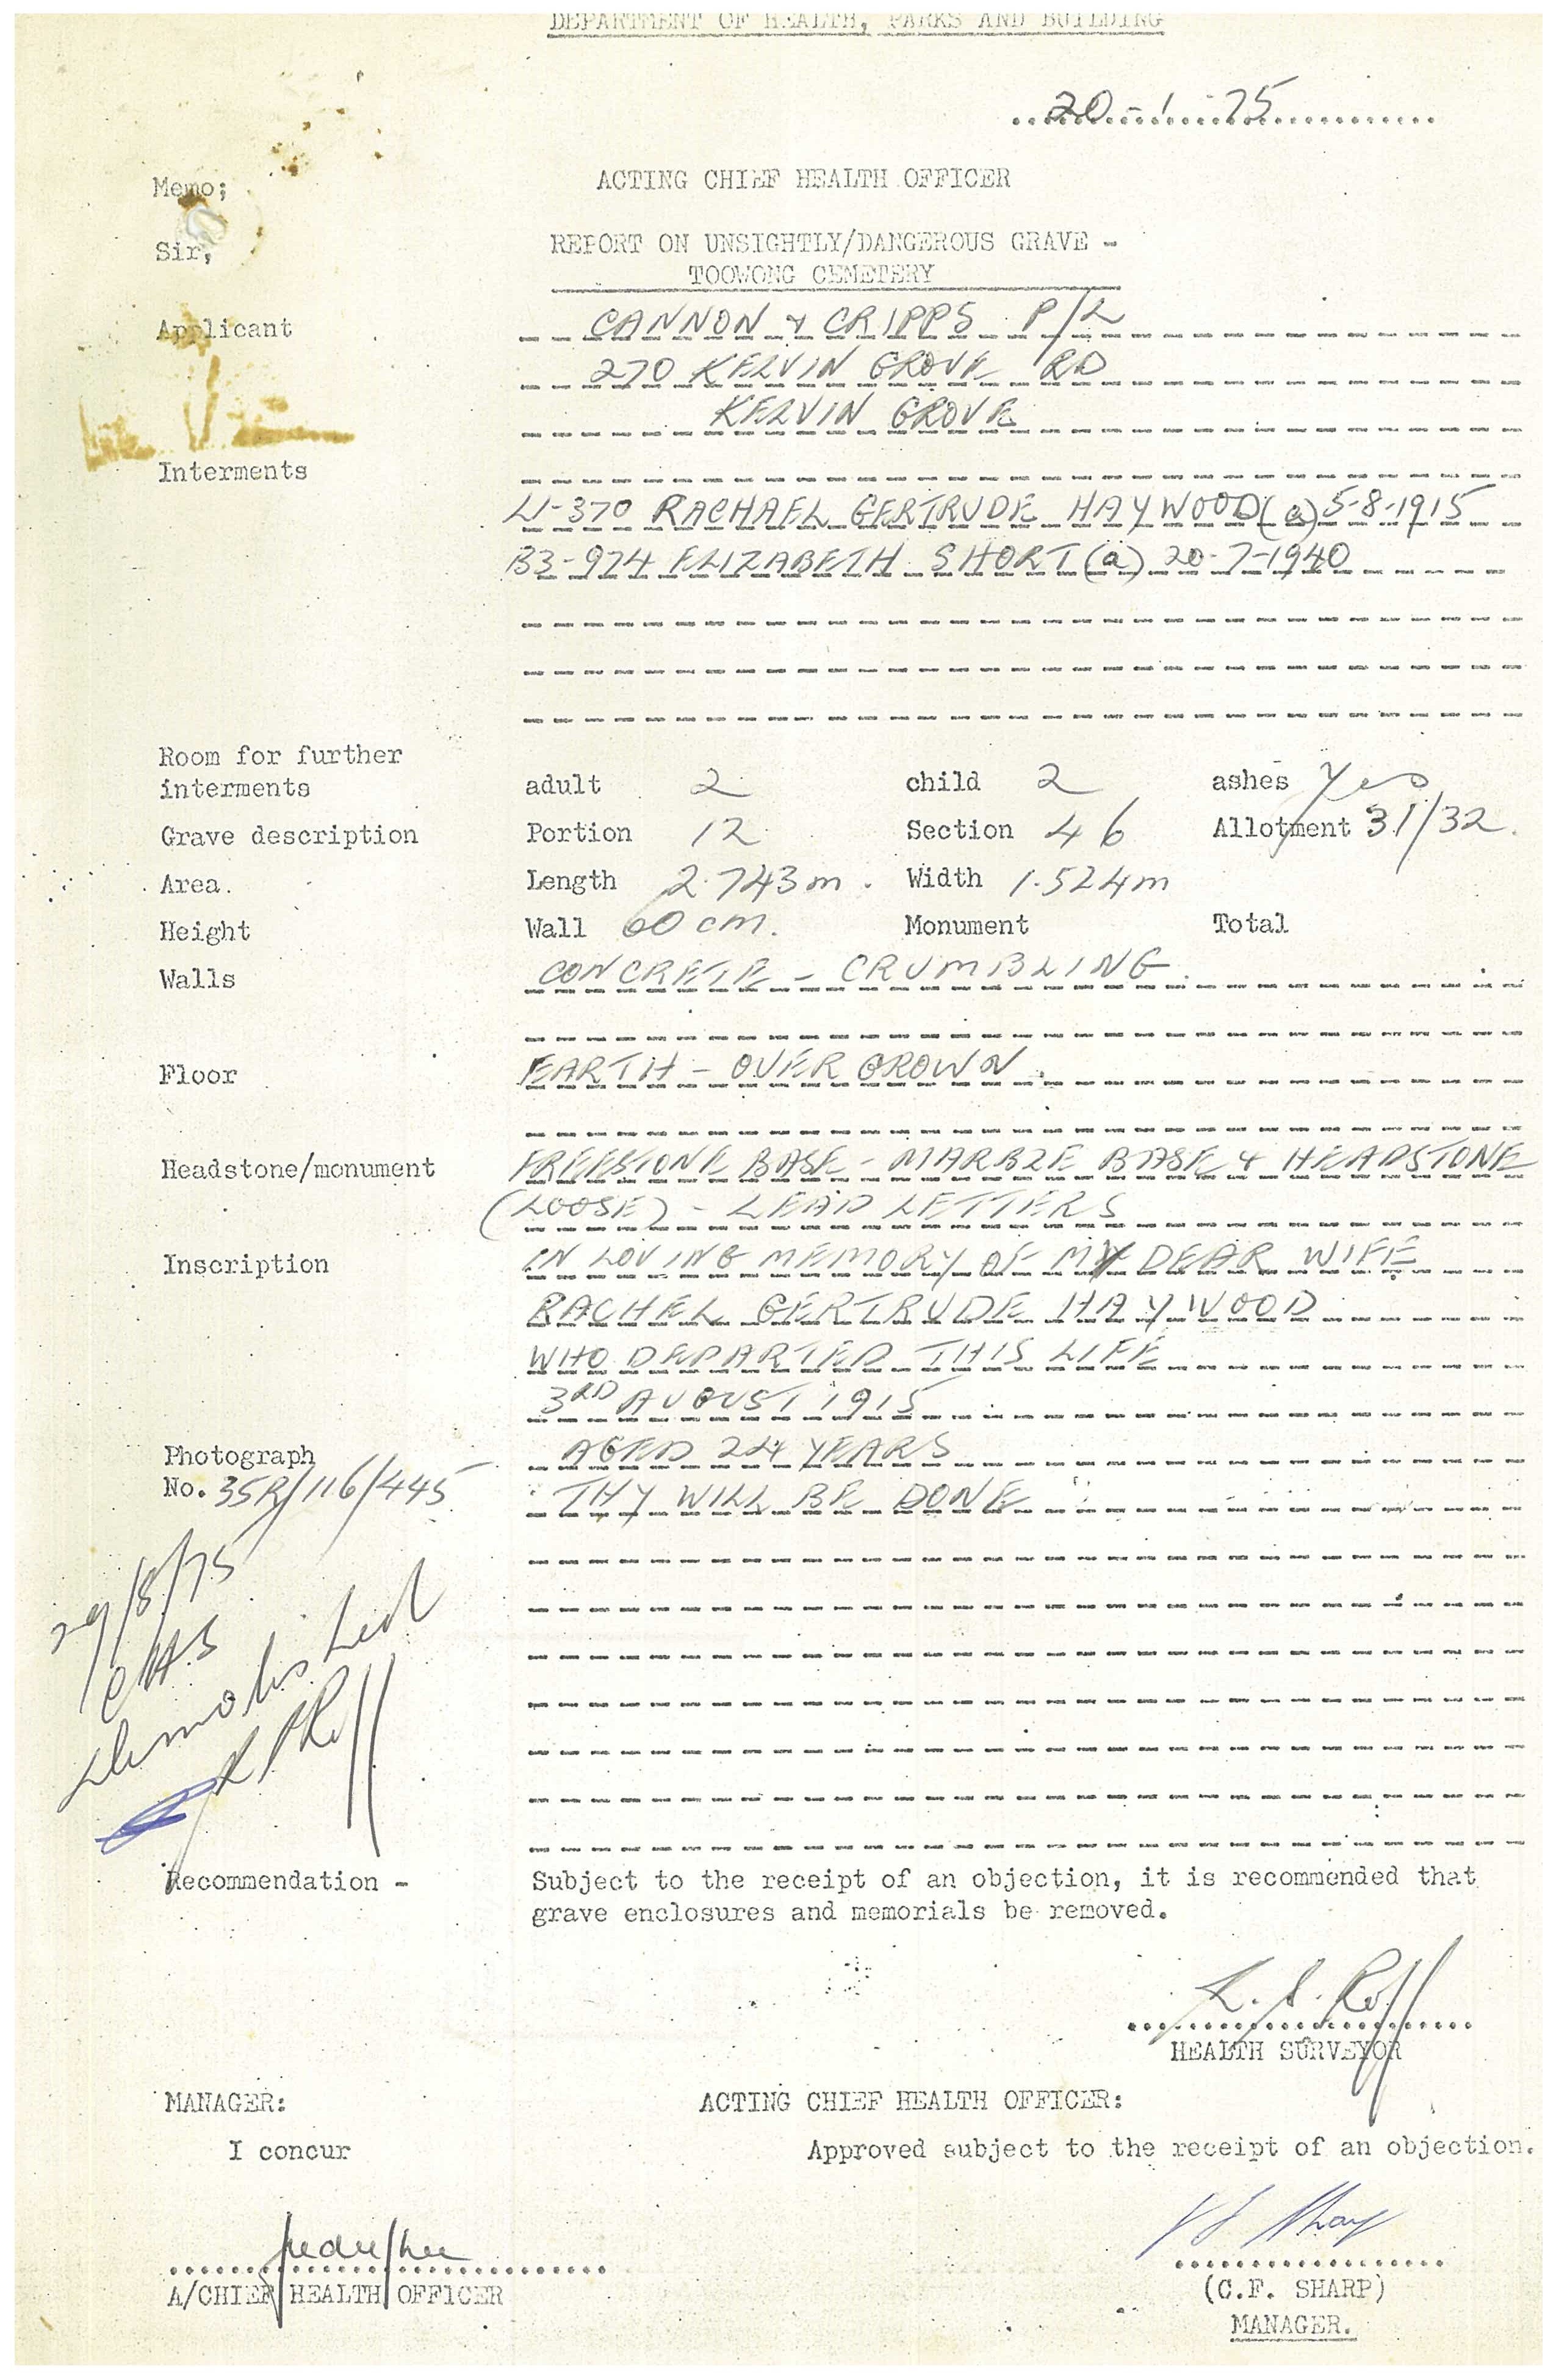 DEPARTMENT OF HEALTH, PARKS AND BUILDING
20-1-75
Memo; ACTING CHIEF HEALTH OFFICER
Sir, REPORT ON UNSIGHTLY/DANGEROUS GRAVE -
TOOWONG CEMETERY
Applicant CANNON & CRIPPS P/L
270 KELVIN GROVE RD
KELVIN GROVE
Interments
LI-370 RACHAEL GERTRUDE HAYWOOD (a) 5-8-1915
B3-974 ELIZABETH SHORT (a) 20-7-1940
Room for further
interments adult 2 child 2 ashes Yes
Grave description Portion 12 Section 46 Allotment 31/32.
Area. Length 2.743m. Width 1.524m
Height Wall 60cm. Monument Total
Walls CONCRETE - CRUMBLING.
Floor EARTH - OVERGROWN.
Headstone/monument FREESTONE BASE - MARBLE BASE & HEADSTONE
(LOOSE) - LEAD LETTERS
Inscription IN LOVING MEMORY OF MY DEAR WIFE
RACHEL GERTRUDE HAYWOOD
WHO DEPARTED THIS LIFE
3RD AUGUST 1915
Photograph AGED 24 YEARS
No. 35R/116/445 THY WILL BE DONE
29/8/75
Demolished
Recommendation - Subject to the receipt of an objection, it is recommended that
grave enclosures and memorials be removed.
L. S. Roff
HEALTH SURVEYOR
MANAGER: ACTING CHIEF HEALTH OFFICER:
I concur Approved subject to the receipt of an objection.
A/CHIEF HEALTH OFFICER (C.F. SHARP)
MANAGER.